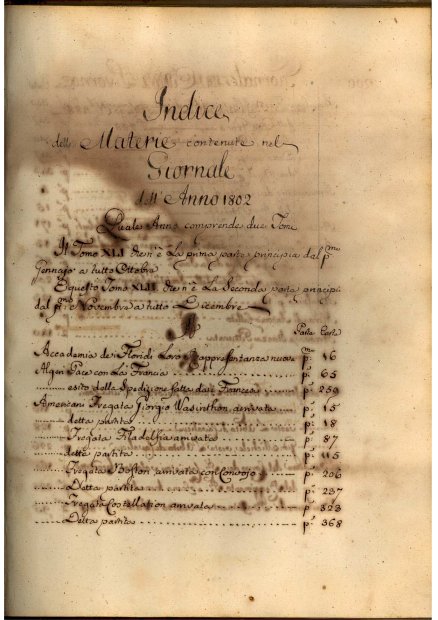 Indice
delle Materie contenute nel
Giornale
dell' Anno 1802
Quale Anno comprende due Tomi
Il Tomo XLI che n'è La prima parte principia dal p.mo
Gennajo a tutto Ottobre
E questo Tomo XLII che n'è La Seconda parte principia
dal p.mo Novembre a tutto Dicembre
A
Parte Carte
Accademia de Floridi Loro rappresentanza nuova p.ma 46
Algeri Pace con La Francia p.a 65
esito della Spedizione fatta dai Francesi p.a 259
Americani Fregata Giorgio Wasinthon arrivata p.a 15
detta partita p.a 18
Fregata Filadelfia arrivata p.a 87
detta partita p.a 115
Fregata Boston arrivata con Convojo p.a 206
Detta partita p.a 237
Fregata Costellation arrivata p.a 323
Detta partita p.a 368